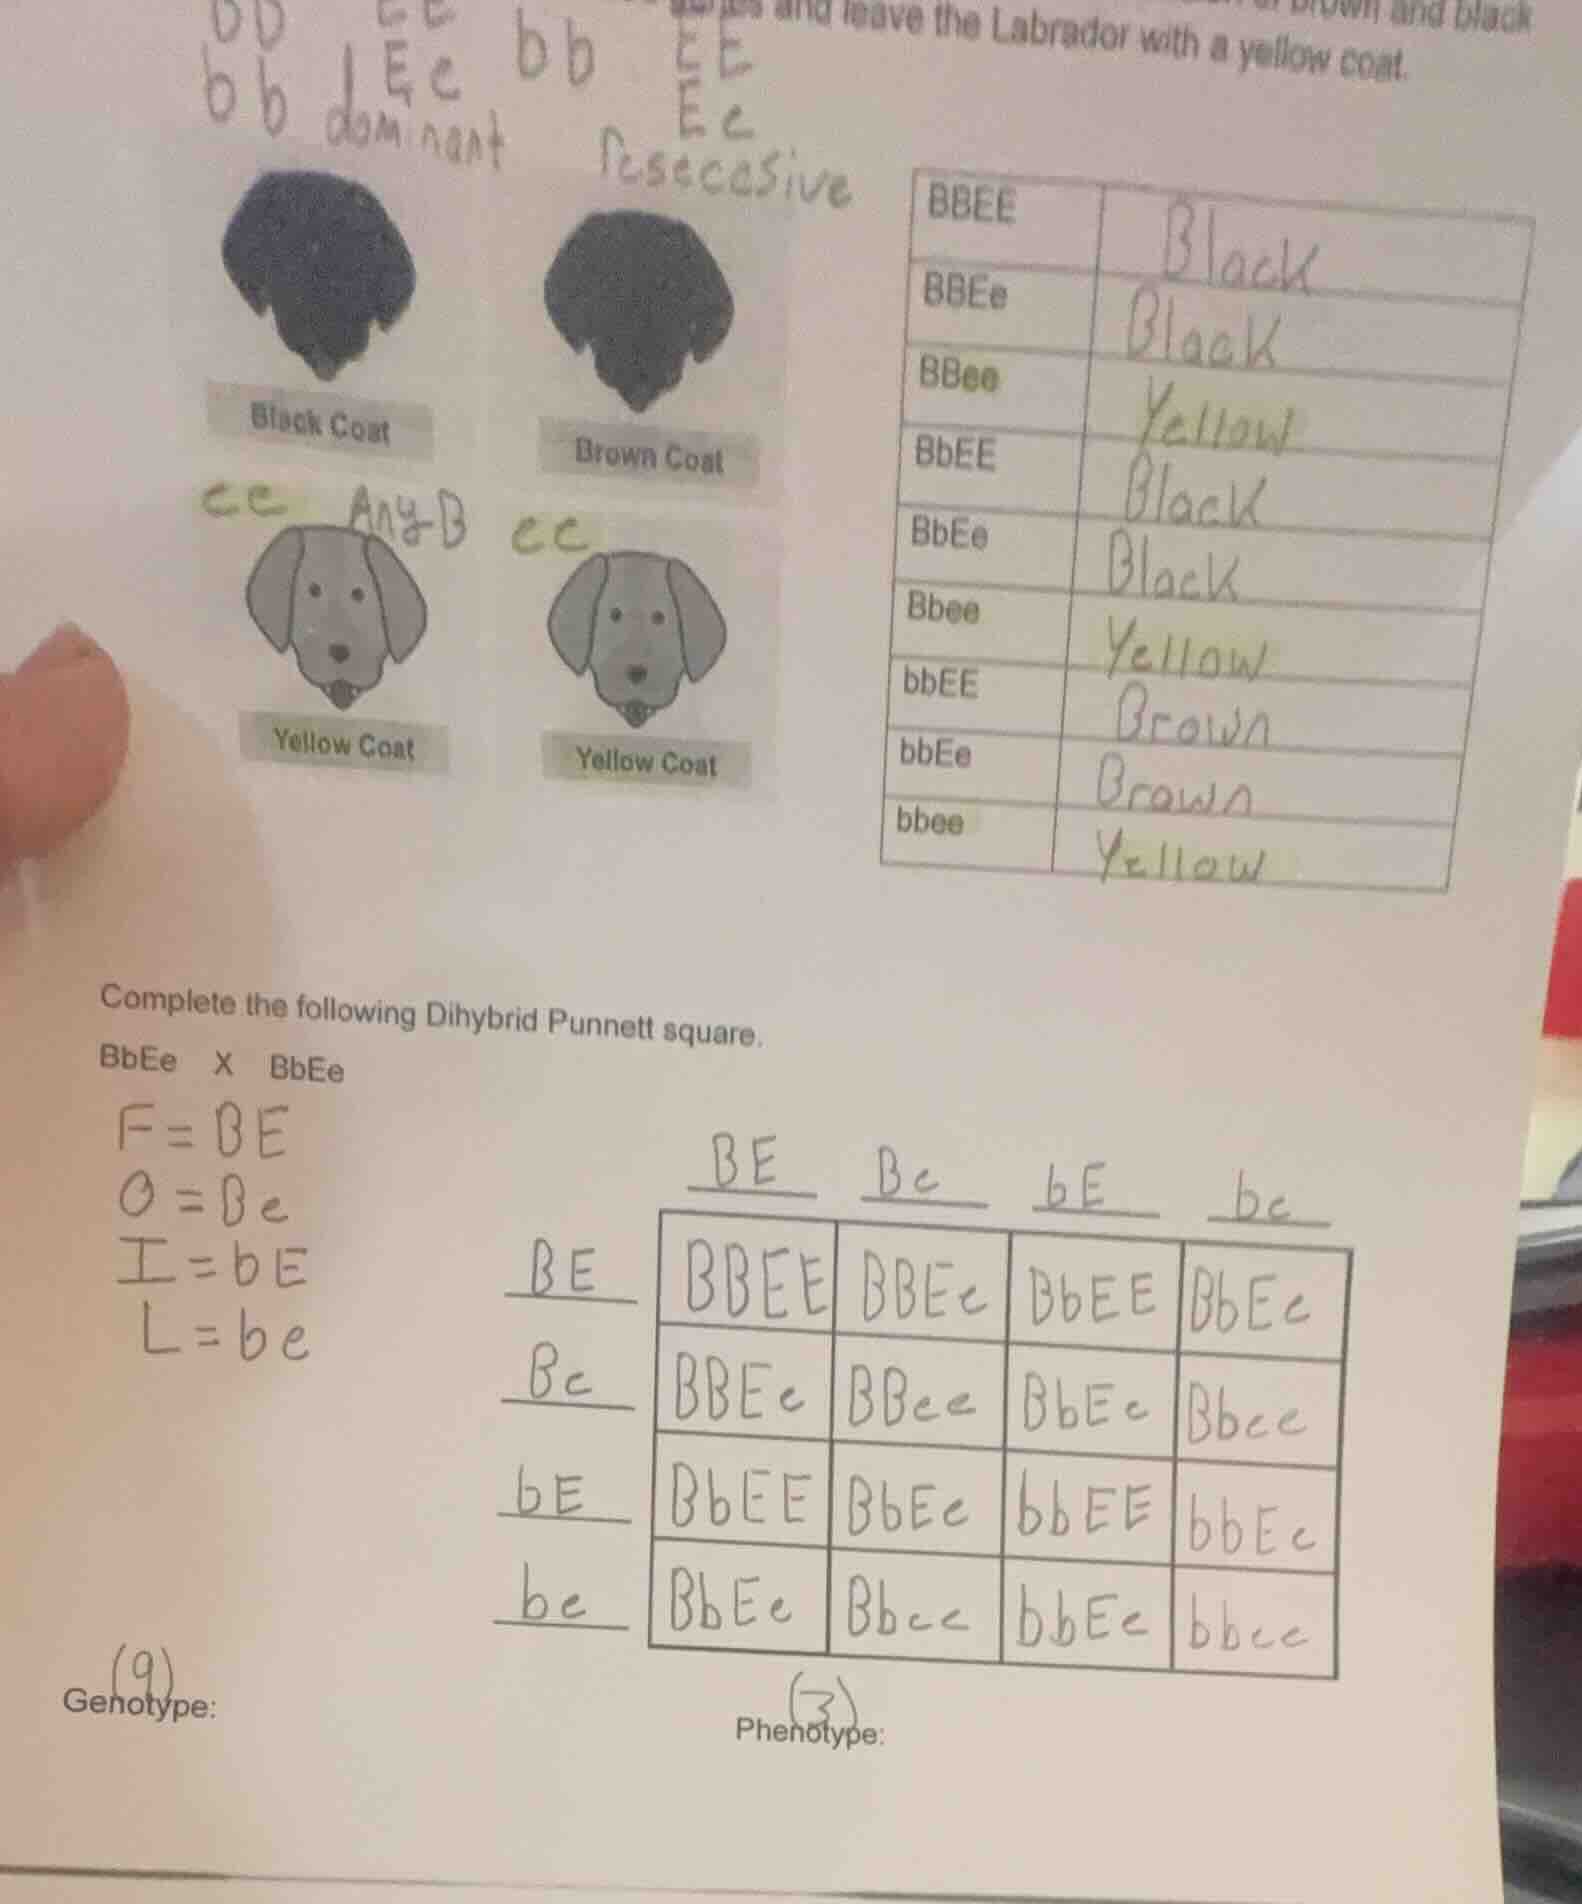 brown and black
and leave the Labrador with a yellow coat.
EE
bb Ee bb EE
Ee
dominant resecesive
Black Coat Brown Coat
ee Any B ee
Yellow Coat Yellow Coat
BBEE Black
BBEe Black
BBee Yellow
BbEE Black
BbEe Black
Bbee Yellow
bbEE Brown
bbEe Brown
bbee Yellow
Complete the following Dihybrid Punnett square.
BbEe X BbEe
F = BE
O = Be
I = bE
L = be
BE Be bE be
BE BBEE BBEe BbEE BbEe
Be BBEe BBee BbEe Bbee
bE BbEE BbEe bbEE bbEe
be BbEe Bbee bbEe bbee
(9)
Genotype:
(3)
Phenotype: